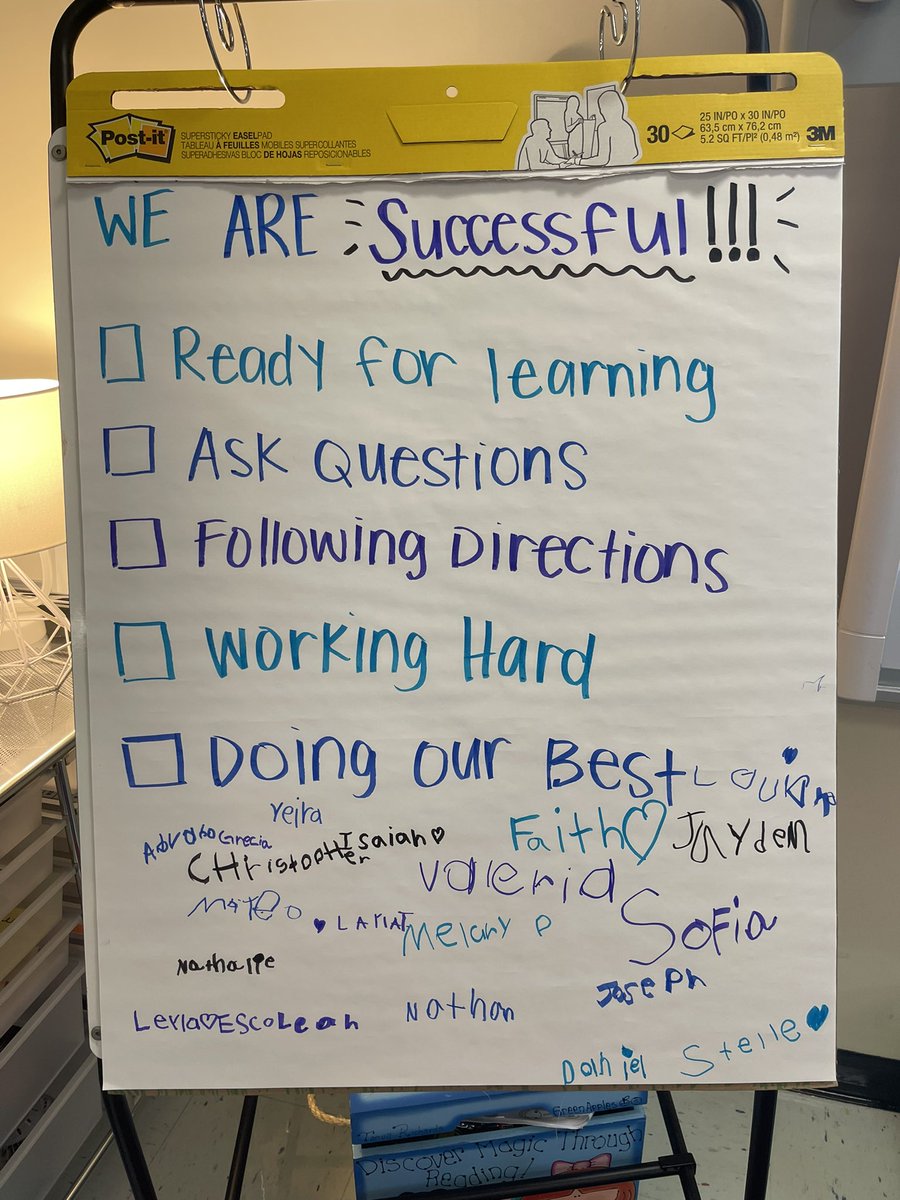 Post-it
SUPERSTICKY EASELPAD
TABLEAU À FEUILLES MOBILES SUPERCOLLANTES
SUPERADHESIVAS BLOC DE HOJAS REPOSICIONABLES
30
25 IN/PO x 30 IN/PO
63,5 cm x 76,2 cm
5.2 SQ FT/PI² (0,48 m²)
3M
WE ARE Successful!!!
Ready for learning
Ask Questions
Following Directions
Working Hard
Doing our Best
Yejra
Grecia
Isaiah
Faith
Jayden
Christopher
Valeria
Mateo
LARIAT
Melany P
Sofia
Nathalie
Joseph
Nathan
Leah
Daniel
Stelle
GreenApples
Discover Magic Through
Reading!